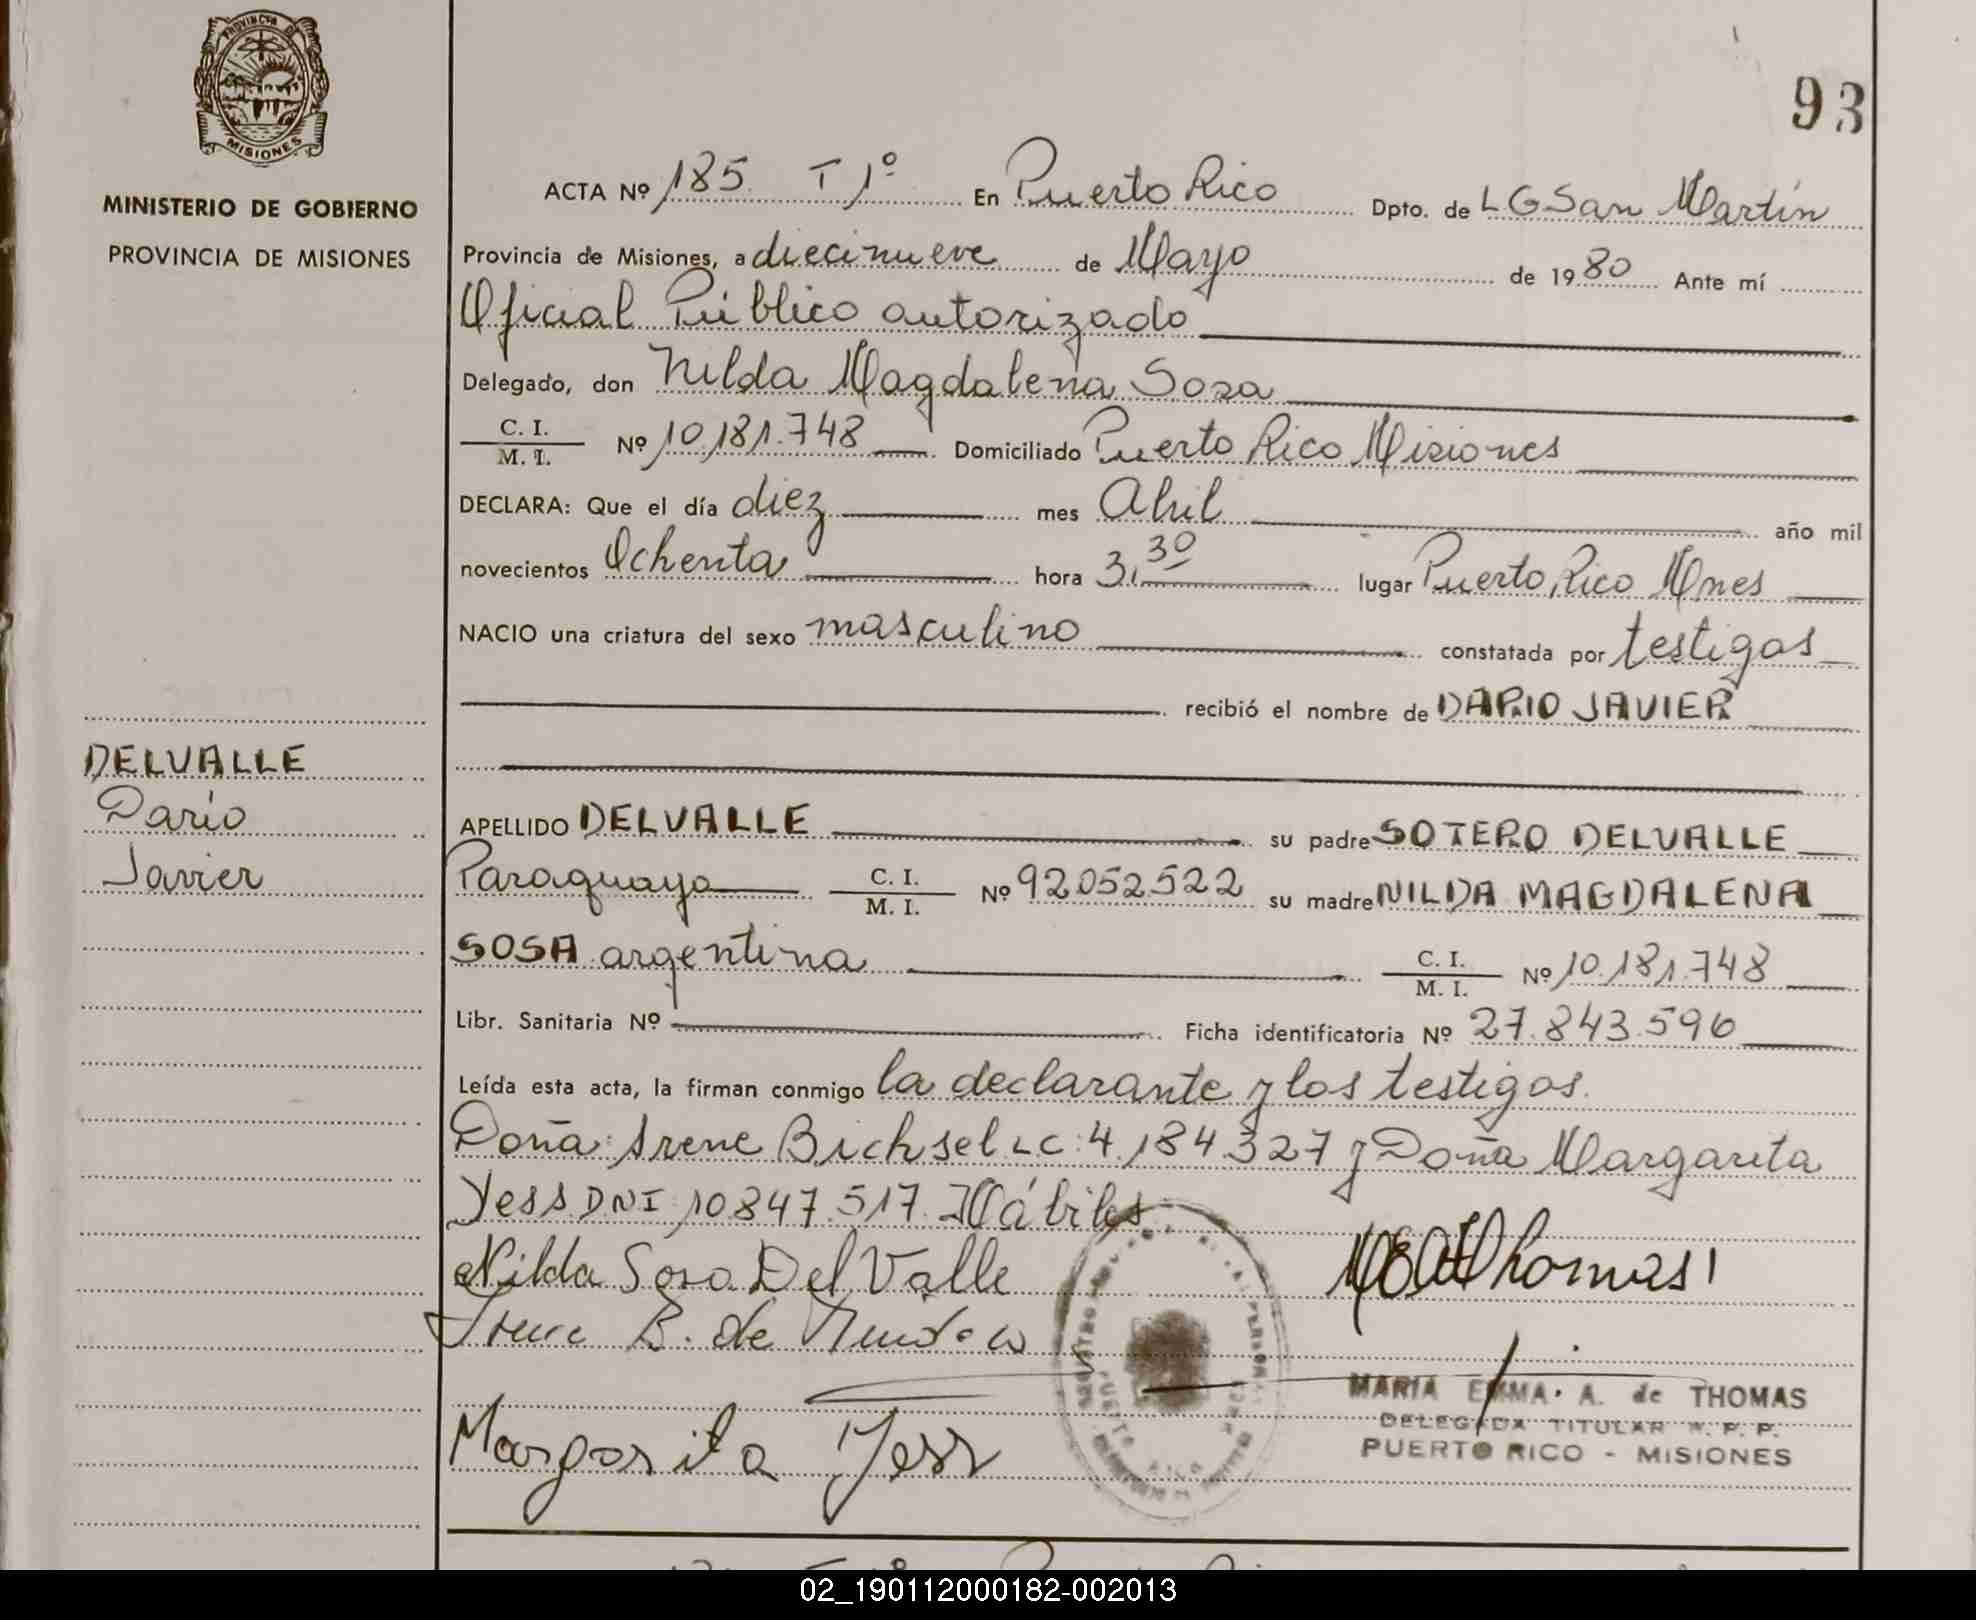 PROVINCIA DE
MISIONES
MINISTERIO DE GOBIERNO
PROVINCIA DE MISIONES
93
ACTA Nº 185 T 1º En Puerto Rico Dpto. de L G San Martín
Provincia de Misiones, a diecinueve de Mayo de 1980 Ante mí
Oficial Público autorizado
Delegado, don Nilda Magdalena Sosa
C. I.
M. I. Nº 10.181.748 Domiciliado Puerto Rico Misiones
DECLARA: Que el día diez mes Abril año mil
novecientos Ochenta hora 3.30 lugar Puerto Rico Mnes
NACIO una criatura del sexo masculino constatada por testigos
recibió el nombre de DARIO JAVIER
DELVALLE
Darío
Javier
APELLIDO DELVALLE su padre SOTERO DELVALLE
Paraguayo C. I.
M. I. Nº 92052522 su madre NILDA MAGDALENA
SOSA argentina C. I.
M. I. Nº 10.181.748
Libr. Sanitaria Nº Ficha identificatoria Nº 27.843.596
Leída esta acta, la firman conmigo la declarante y los testigos.
Doña: Irene Bichsel LC: 4.184.327 y Doña Margarita
Yess DNI 10847.517. Hábiles
Nilda Sosa Del Valle
Irene B. de
Margarita Yess
MARIA EMMA A. de THOMAS
DELEGADA TITULAR R. P. P.
PUERTO RICO - MISIONES
02_190112000182-002013